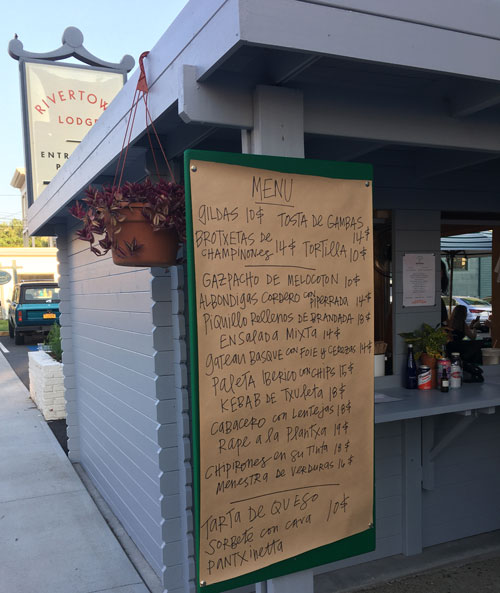 RIVERTOWN
LODGE
MENU
GILDAS 10$ TOSTA DE GAMBAS 14$
BROTXETAS DE CHAMPINONES 14$ TORTILLA 10$
GAZPACHO DE MELOCOTON 10$
ALBONDIGAS CORDERO con PIPERRADA 14$
PIQUILLO Rellenos DE BRANDADA 18$
ENSALADA MIXTA 14$
gateau BASQUE con FOIE y CEREZAS 14$
PALETA IBERICO con CHIPS 15$
KEBAB DE TXULETA 18$
CABACERO con Lentejas 18$
Rape a la Plantxa 19$
CHIPIRONES en su TINTA 18$
MENESTRA DE VERDURAS 16$
TARTA DE QUESO 10$
SORBETE con CAVA
PANTXINETTA